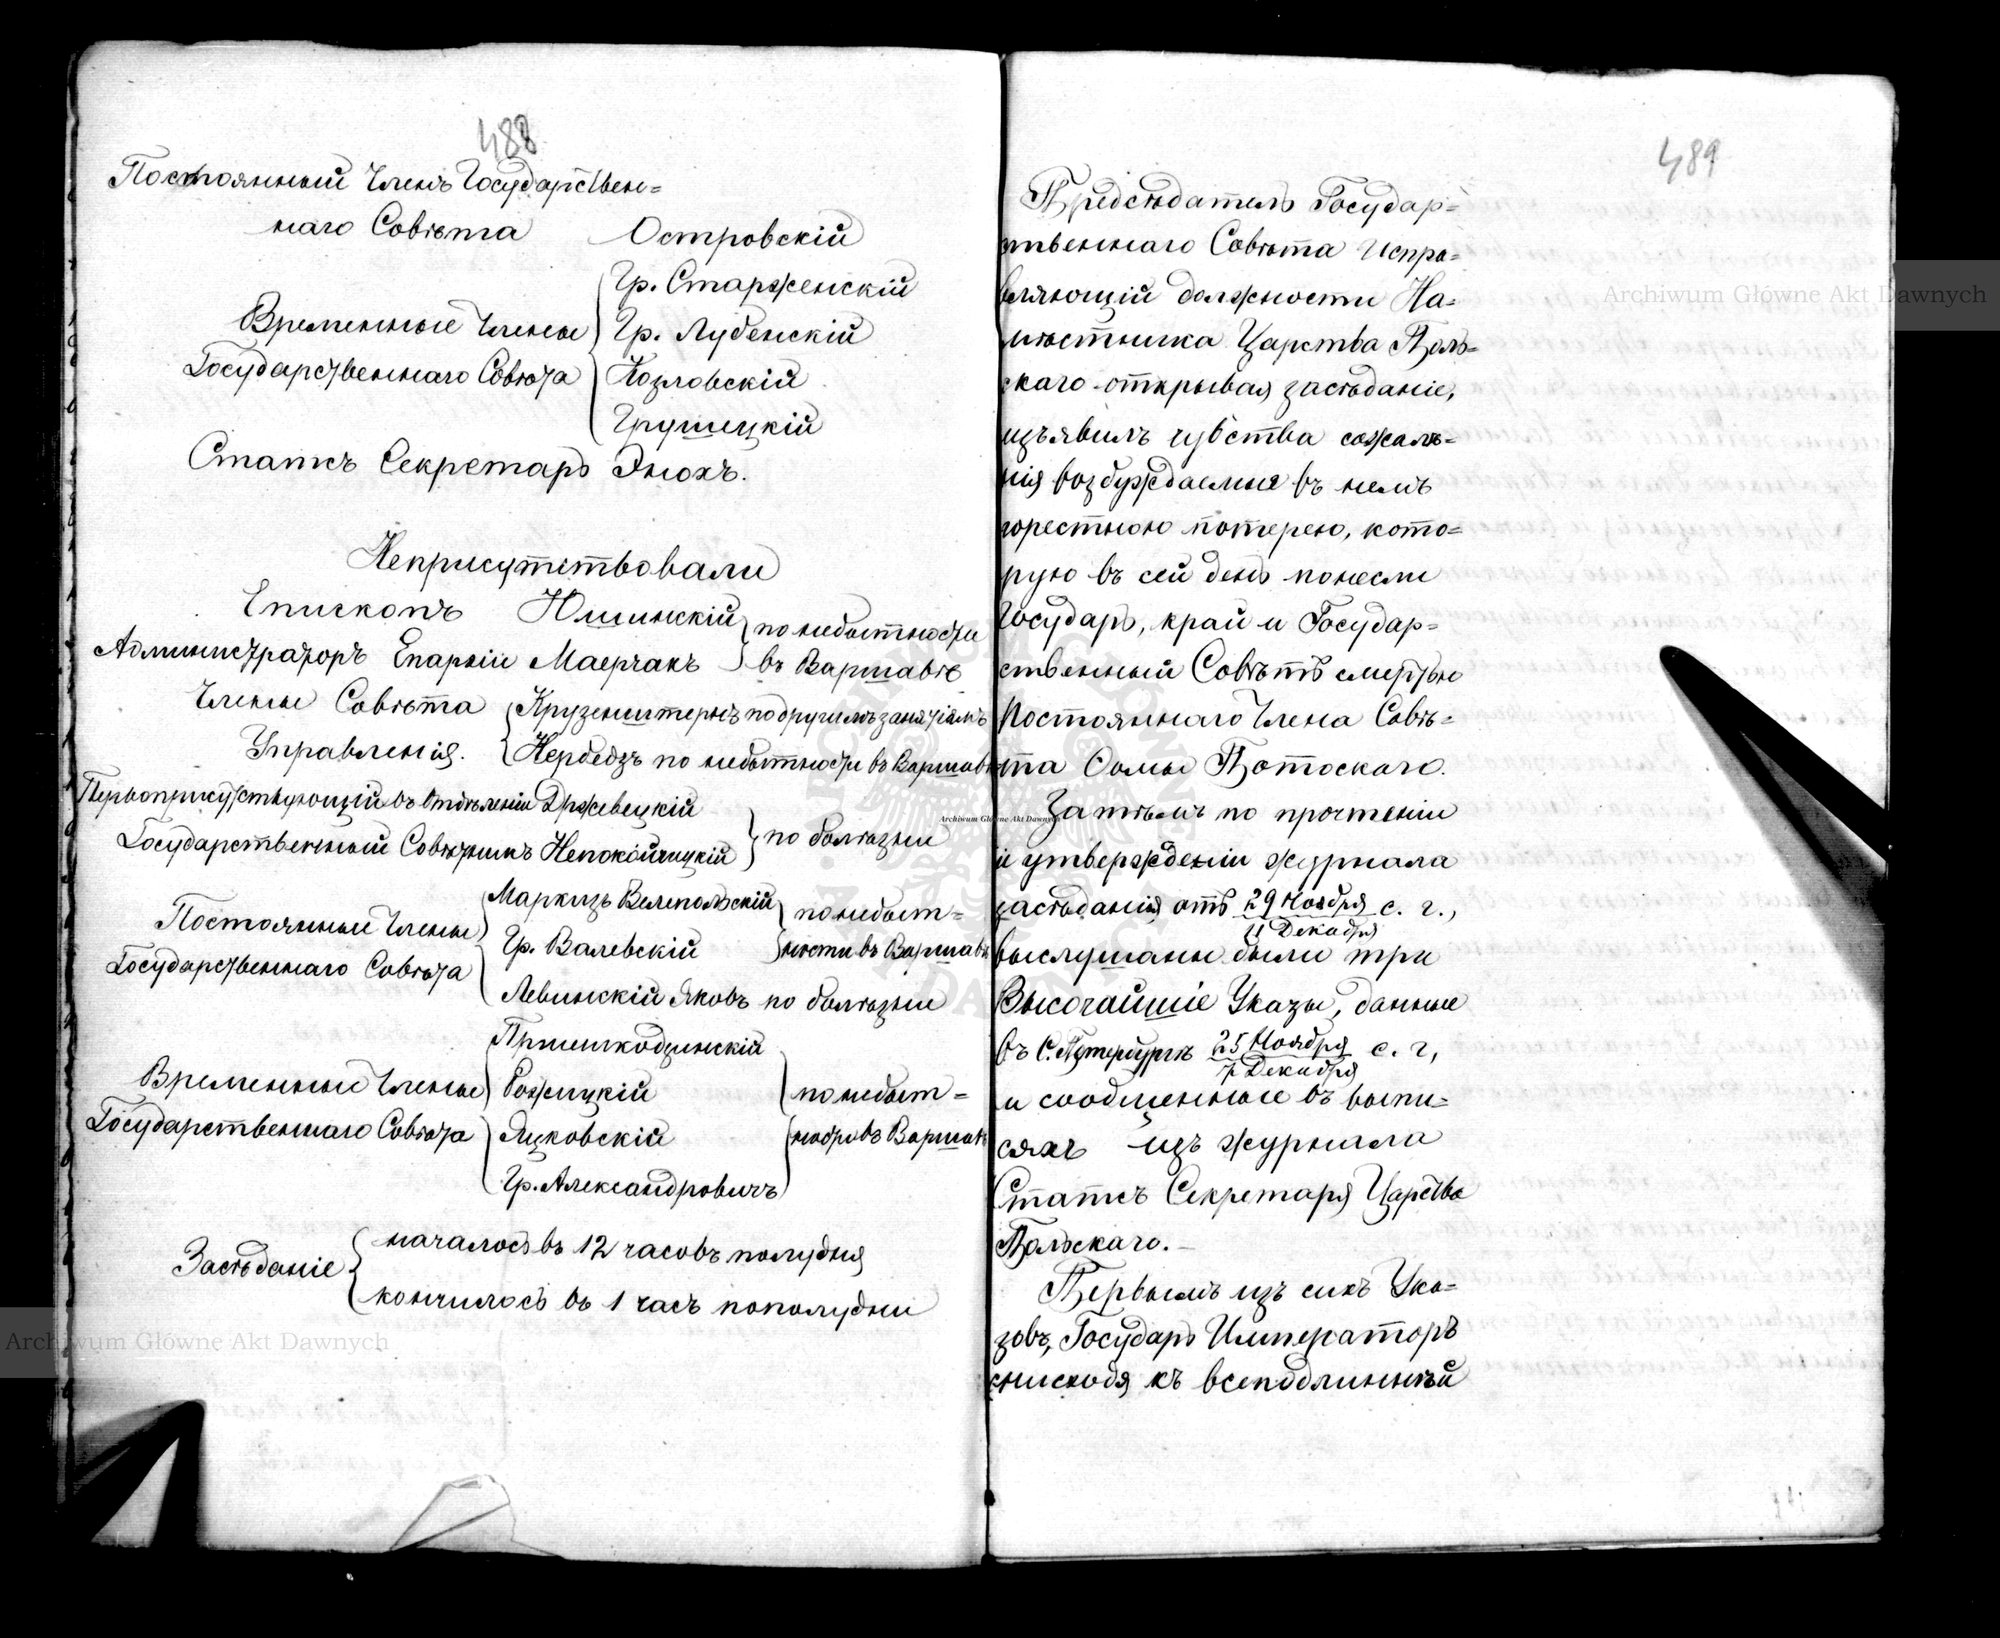 488
Постоянный Членъ Государствен=
наго Совѣта Островскій
Гр. Старженскій
Временные Члены Гр. Лубенскій
Государственнаго Совѣта Козловскій
Грушецкій
Статсъ Секретарь Энохъ.
Неприсутствовали
Епископъ Юшинскій по небытности
Администраторъ Епархіи Маерчакъ въ Варшавѣ
Члены Совѣта Крузенштернъ по другимъ занятіямъ
Управленія. Кербедзъ по небытности въ Варшавѣ
Первоприсутствующій въ Отдѣленіи Држевецкій
Государственный Совѣтникъ Непокойчицкій по болѣзни
Маркизъ Велепольскій по небыт=
Постоянные Члены Гр. Валевскій ности въ Варшавѣ
Государственнаго Совѣта Левинскій Яковъ по болѣзни
Пршешкодзинскій
Временные Члены Рожицкій по небыт=
Государственнаго Совѣта Яцковскій ности въ Варшавѣ
Гр. Александровичъ
началось въ 12 часовъ полудня
Засѣданіе
кончилось въ 1 часъ пополудни
489
Предсѣдатель Государ=
ственнаго Совѣта Испра=
вляющій должности На=
мѣстника Царства Поль=
скаго открывая засѣданіе,
изъявилъ чувства сожалѣ=
нія возбуждаемыя въ немъ
горестною потерею, кото=
рую въ сей день понесли
Государь, край и Государ=
ственный Совѣтъ смертью
Постояннаго Члена Совѣ=
та Ѳомы Потоскаго.
Затѣмъ по прочтеніи
и утвержденіи журнала
засѣданія отъ 29 Ноября с. г.,
11 Декабря
выслушаны были три
Высочайшіе Указы, данные
въ С. Петербургѣ 25 Ноября с. г,
7 Декабря
и сообщенные въ выпи=
сяхъ изъ журнала
Статсъ Секретаря Царства
Польскаго. —
Первымъ изъ сихъ Ука=
зовъ, Государь Императоръ
снисходя къ всеподданнѣй
Archiwum Główne Akt Dawnych
Archiwum Główne Akt Dawnych
Archiwum Główne Akt Dawnych